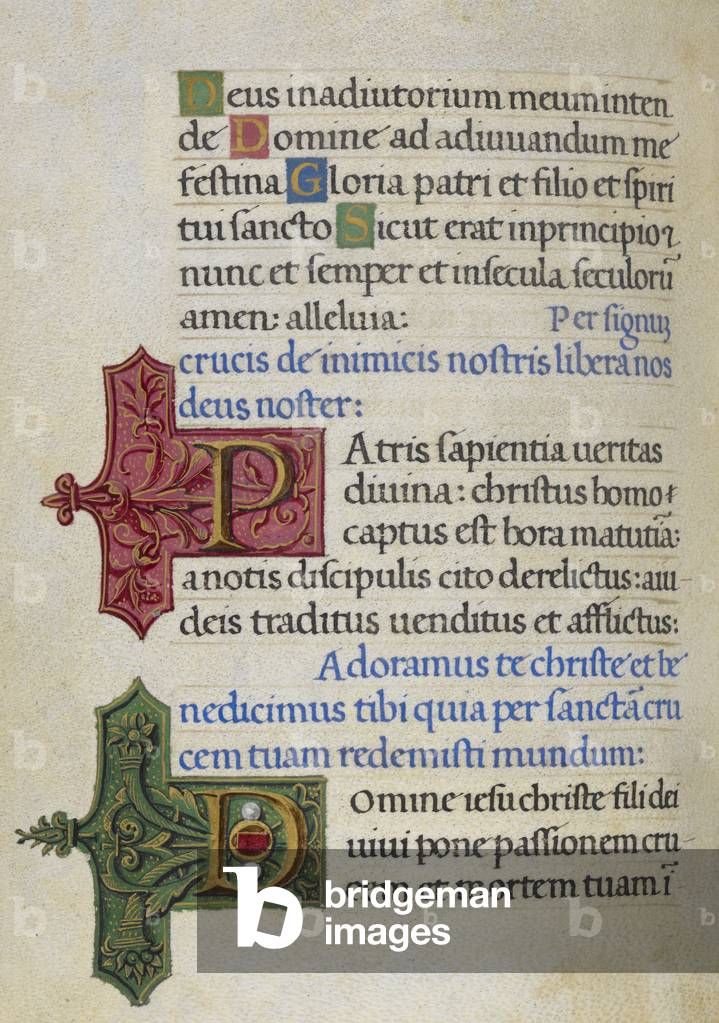 Deus inadiutorium meum inten
de Domine ad adiuuandum me
festina Gloria patri et filio et spiri
tui sancto Sicut erat inprincipio ⁊
nunc et semper et insecula seculorũ
amen: alleluia: Per signuʒ
crucis de inimicis nostris libera nos
deus noster:
PAtris sapientia ueritas
diuina: christus homo ⁊
captus est hora matutĩa:
a notis discipulis cito derelictus: a iu-
deis traditus uenditus et afflictus:
Adoramus te christe et be
nedicimus tibi quia per sanctã cru
cem tuam redemisti mundum:
Domine iesu christe fili dei
uiui pone passionem cru-
cem et mortem tuam ĩ
bridgeman
images